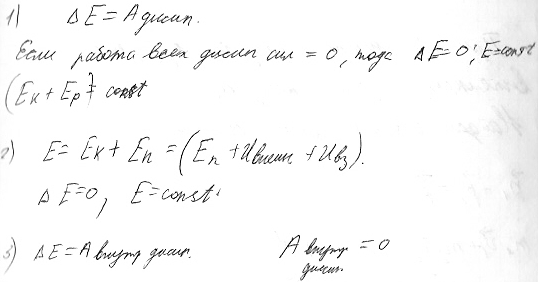 1) Δ E = A дисип.
Если работа всех дисип сил = 0, тода Δ E = 0; E = const
(Eк + Ep) = const
2) E = Eк + Eп = (Eп + Uвнешн + Uвз).
Δ E = 0, E = const.
3) Δ E = A внутр дисип. A внутр дисип. = 0